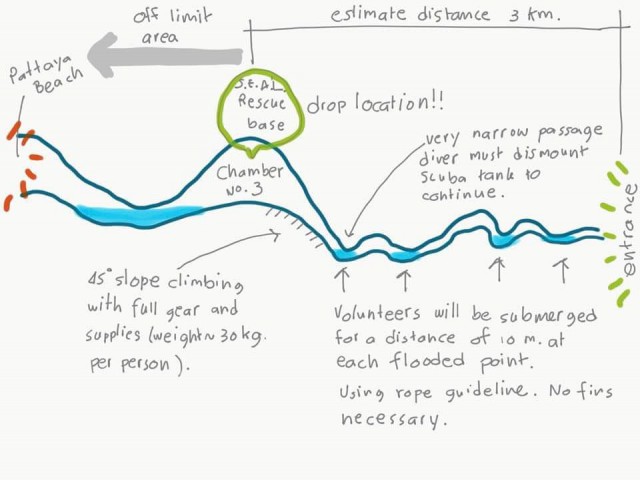 off limit
area
estimate distance 3 km.
Pattaya
Beach
S.E.A.L.
Rescue
base
drop location!!
very narrow passage
diver must dismount
scuba tank to
continue.
Chamber
No. 3
entrance
45° slope climbing
with full gear and
supplies (weight~30kg.
per person).
Volunteers will be submerged
for a distance of 10 m. at
each flooded point.
Using rope guideline. No fins
necessary.